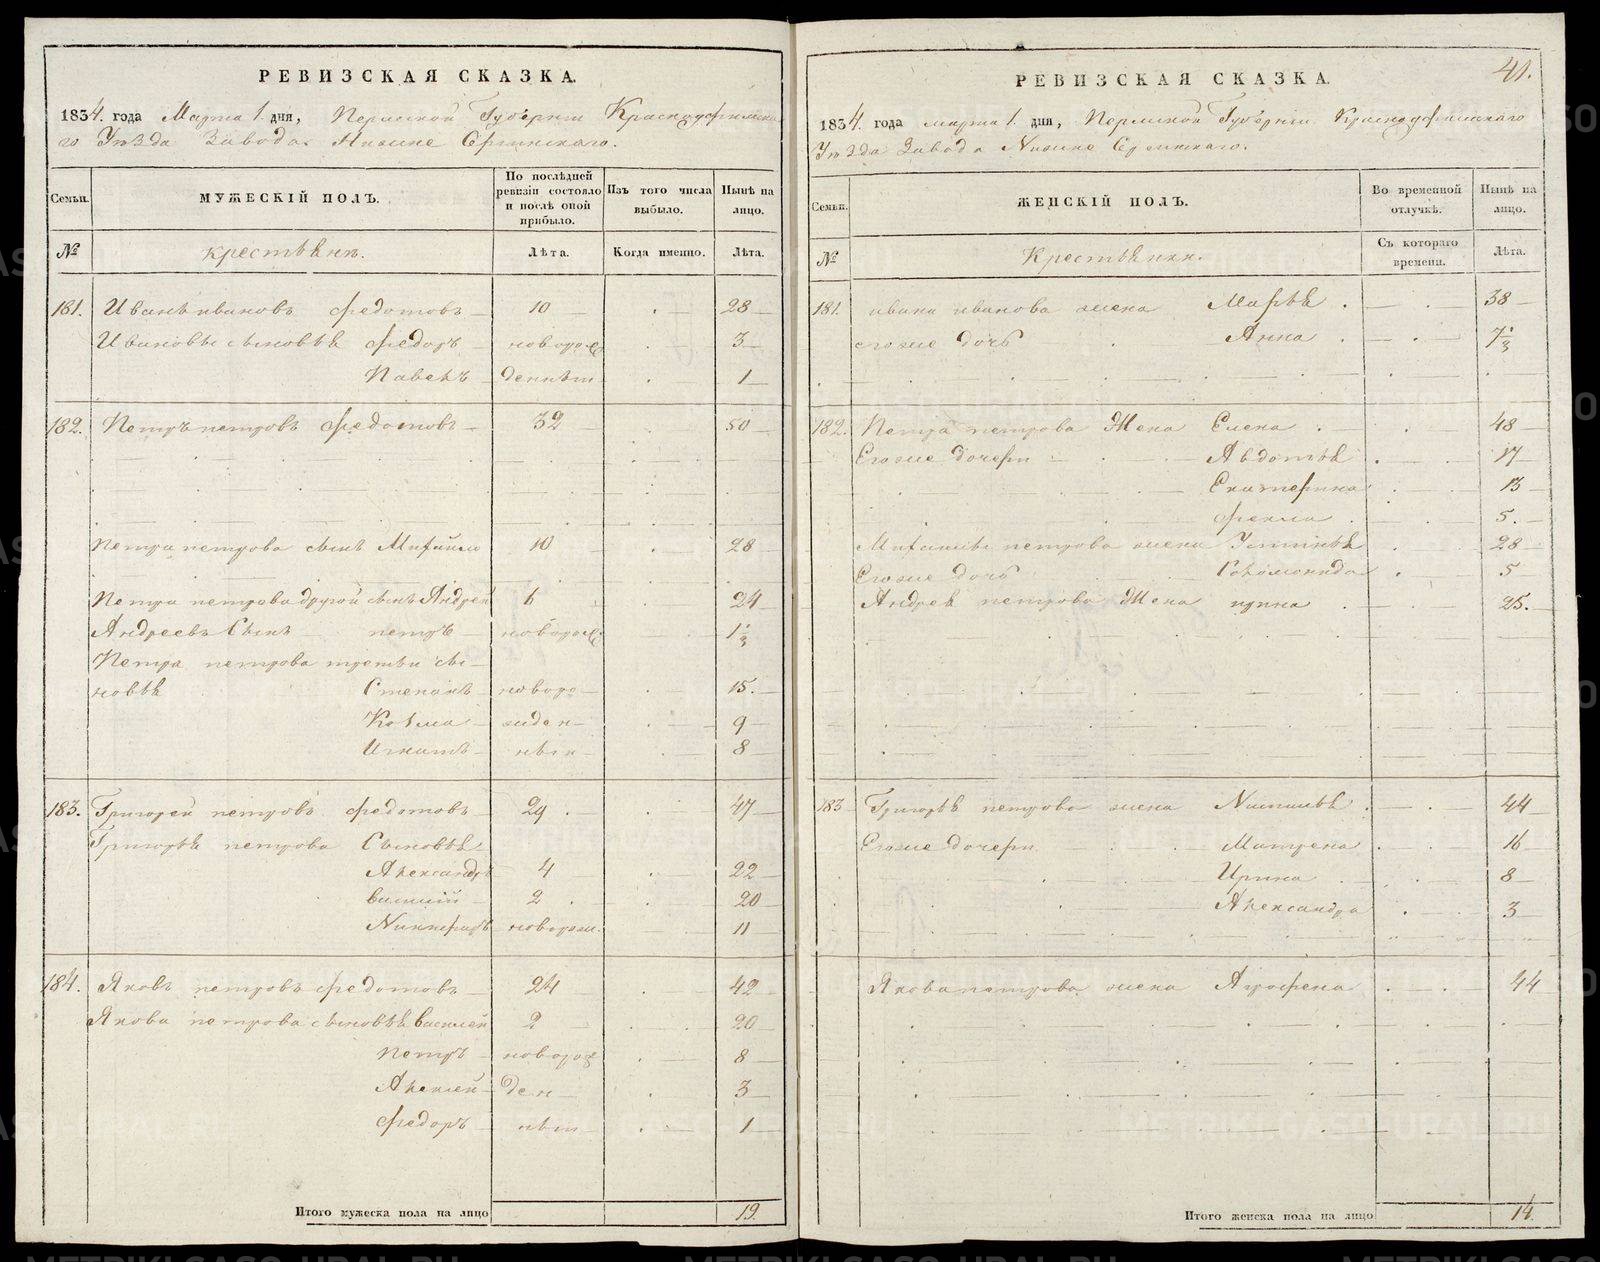 РЕВИЗСКАЯ СКАЗКА.
1834. года Марта 1. дня, Пермской Губернiи Красноуфимска
го Уѣзда Завода Нижне Сергинскаго.
Семьи. МУЖЕСКIЙ ПОЛЪ. По послѣдней ревизiи состояло и послѣ оной прибыло. Изъ того числа выбыло. Нынѣ на лицо.
№ Крестьянъ. Лѣта. Когда именно. Лѣта.
181. Иванъ Ивановъ Федотовъ 10 28
Ивановы сыновья Федоръ новорож 3
Павелъ денны 1
182. Петръ петровъ Федотовъ 32 50
Петра петрова сынъ Михайло 10 28
Петра петрова другой сынъ Андрей 6 24
Андреевъ Сынъ петръ новорож 1 1/3
Петра петрова третьи сы
новья Степанъ новоро 15.
Козьма жден 9
Игнатъ ны 8
183. Григорей петровъ Федотовъ 29 47
Григорья петрова Сыновья
Александръ 4 22
василiй 2 20
Никифоръ новорож. 11
184. Яковъ петровъ Федотовъ 24 42
Якова петрова сыновья Василей 2 20
петръ новорож 8
Алексей ден 3
Федоръ ны 1
Итого мужеска пола на лицо 19.
41.
РЕВИЗСКАЯ СКАЗКА.
1834. года марта 1. дня, Пермской Губернiи Красноуфимскаго
Уѣзда Завода Нижне Сергинскаго.
Семьи. ЖЕНСКIЙ ПОЛЪ. Во временной отлучкѣ. Нынѣ на лицо.
№ Крестьянки. Съ котораго времени. Лѣта.
181. ивана иванова жена Марья 38
егоже дочь Анна 7 1/3
182. Петра петрова Жена Елена 48
Егоже дочери Авдотья 17
Екатерина 13
Фекла 5.
Михайлы петрова жена Устинья 28
Егоже дочь Соломонида 5
Андрея петрова Жена ирина 25.
183 Григорья петрова жена 44
Егоже дочери Матрена 16
Ирина 8
Александра 3
Якова петрова жена Аграфена 44
Итого женска пола на лицо 14.
METRIKI-GASO-URAL.RU